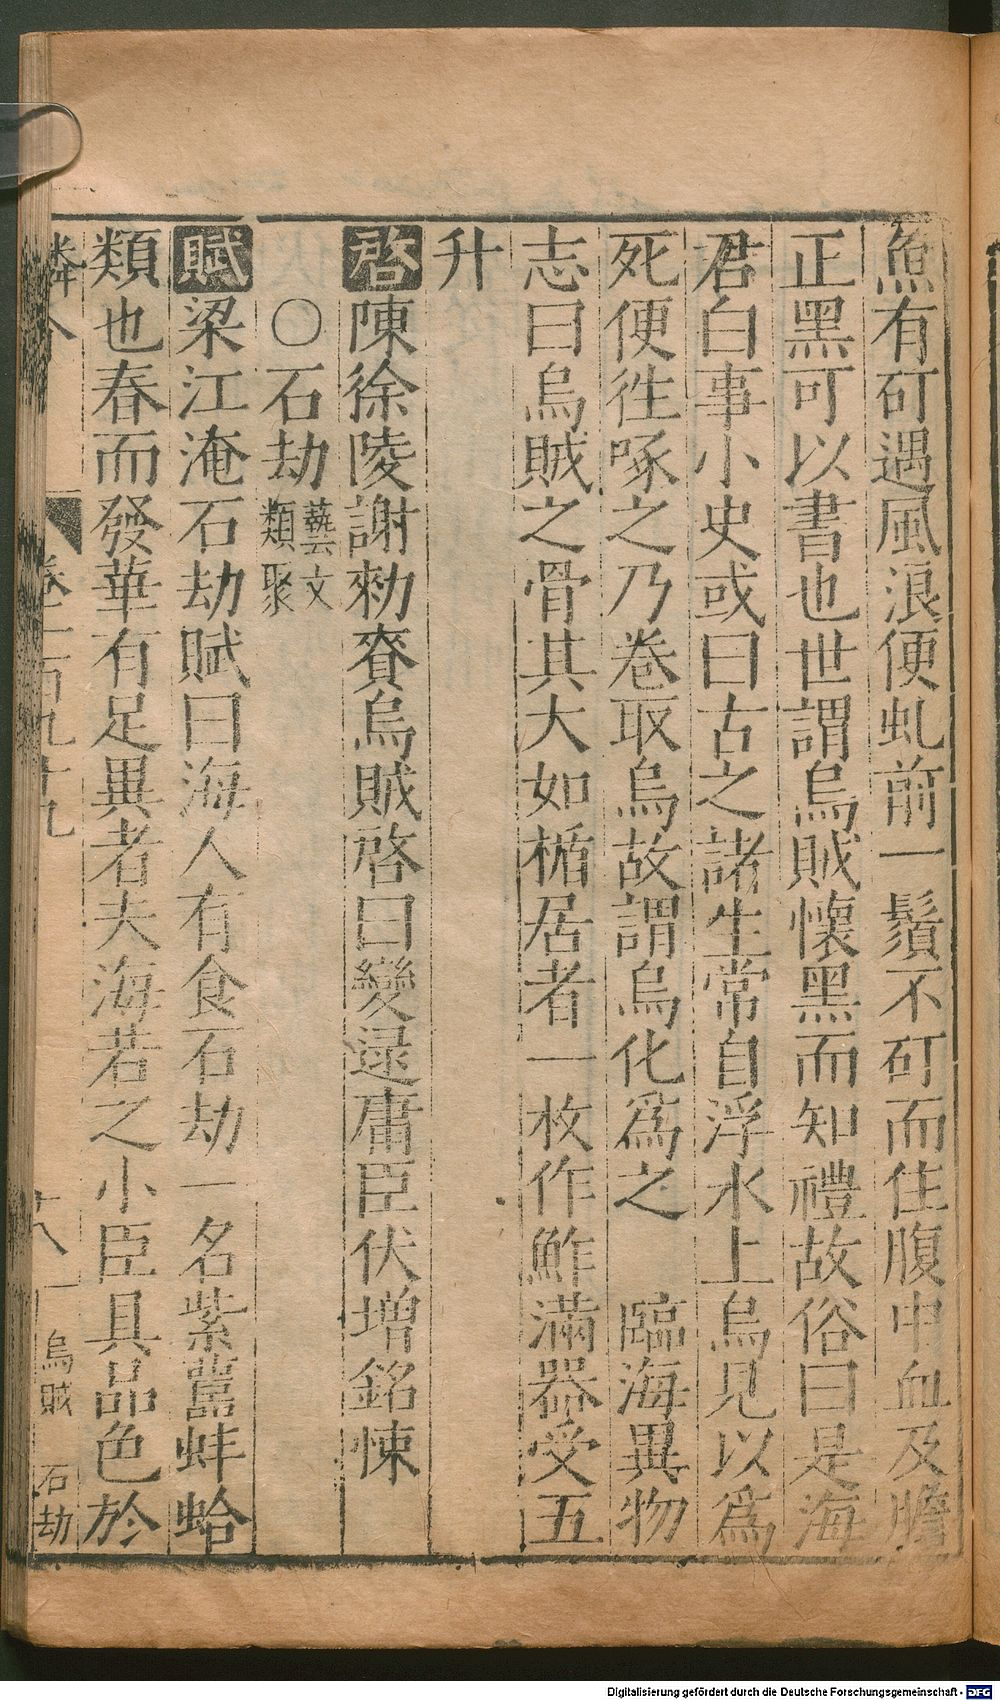 魚有矴遇風浪便虬前一鬚下矴而住腹中血及膽
正黑可以書也世謂烏賊懷黑而知禮故俗曰是海
君白事小史或曰古之諸生常自浮水上烏見以爲
死便徃啄之乃卷取烏故謂烏化爲之　臨海異物
志曰烏賊之骨其大如楯居者一枚作鮓滿器受五
升
啓陳徐陵謝勑賚烏賊啓曰變逯庸臣伏增銘悚
〇石劫藝文類聚
賦梁江淹石劫賦曰海人有食石劫一名紫䖆蚌蛤
類也春而發華有足異者夫海若之小臣具品色於
卷一百九十九
十八
烏賊 石劫
Digitalisierung gefördert durch die Deutsche Forschungsgemeinschaft - DFG